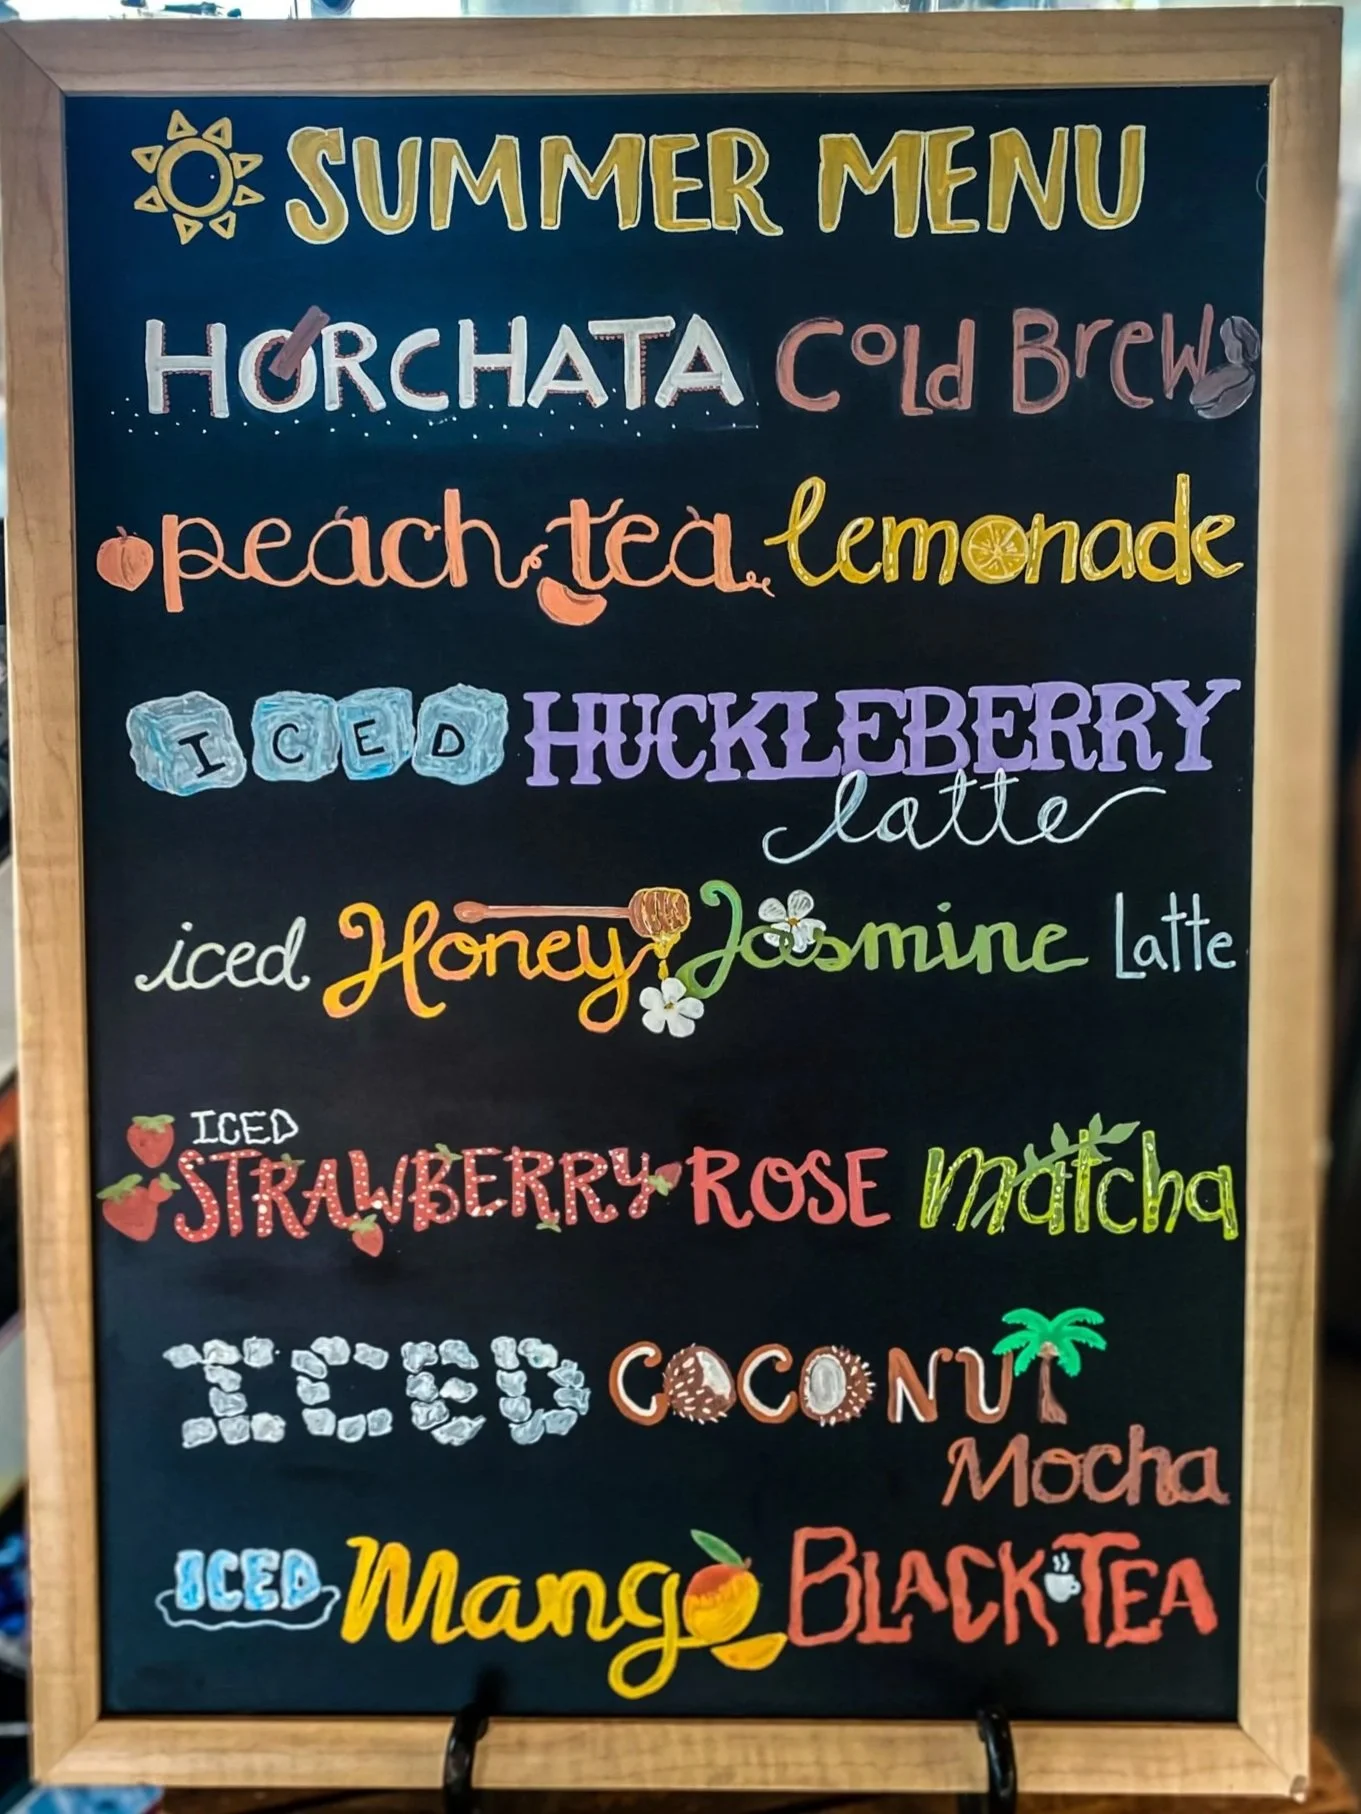 SUMMER MENU
HORCHATA Cold Brew
peach tea lemonade
ICED HUCKLEBERRY
latte
iced Honey Jasmine Latte
ICED
STRAWBERRY ROSE matcha
ICED COCONUT
Mocha
ICED Mango BLACK TEA